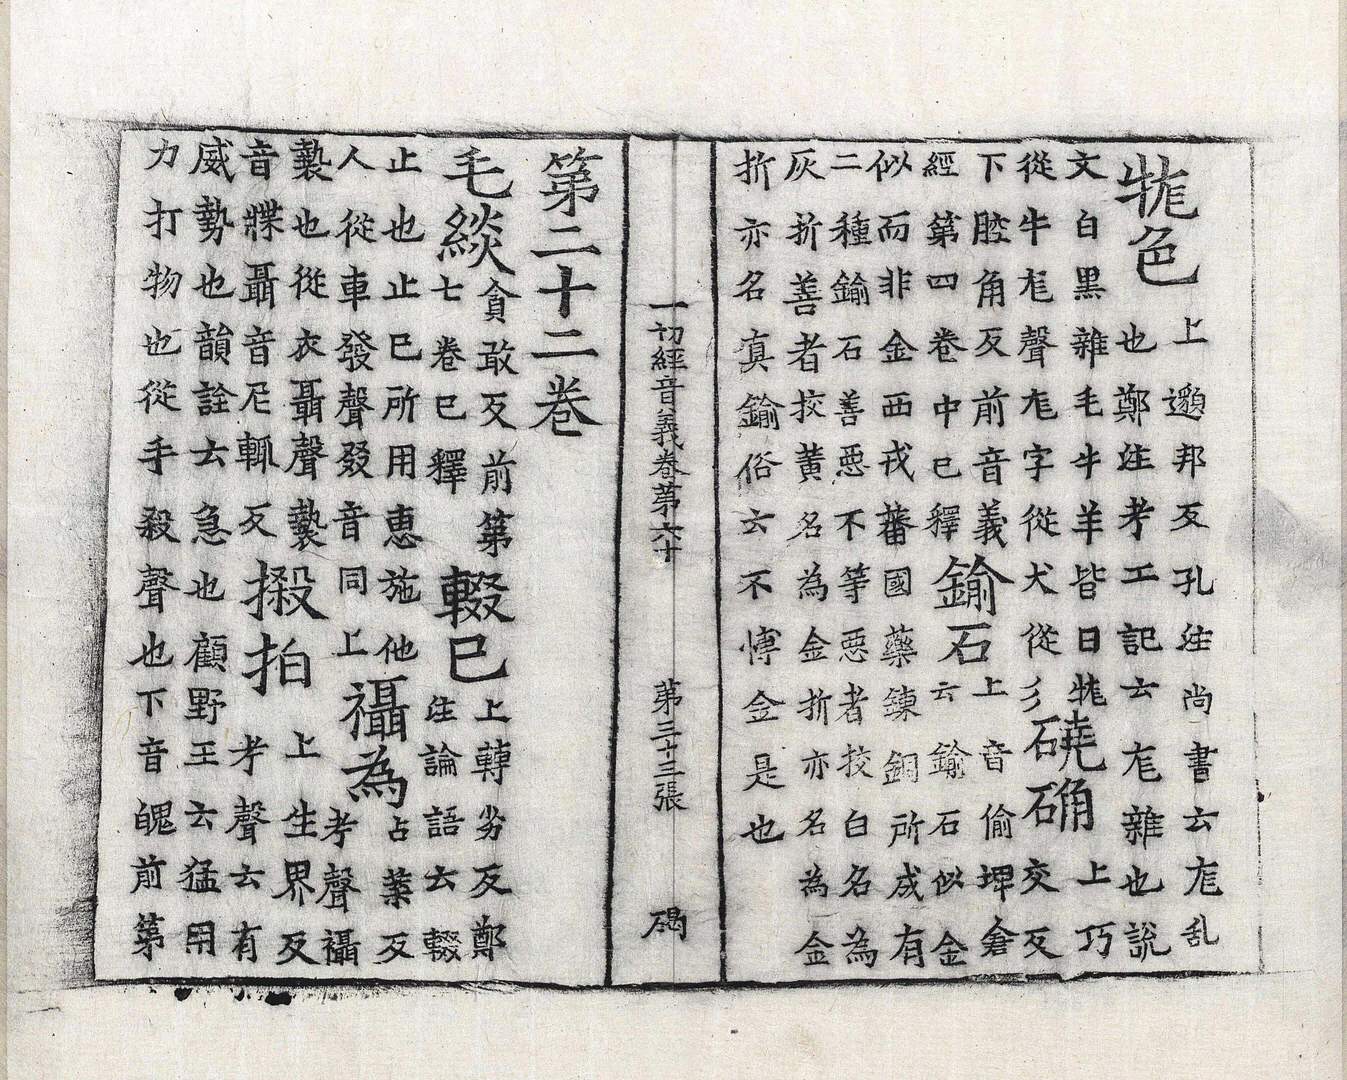 牻色
上邈邦反孔注尚書云尨乱
也鄭注考工記云尨雜也說
文白黑雜毛牛羊皆曰牻
從牛尨聲尨字從犬從彡
磽确
上巧
交反
下腔角反前音義
經第四卷中已釋
鍮石
上音偷埤倉
云鍮石似金
似而非金西戎蕃國藥鍊銅所成有
二種鍮石善惡不等惡者挍白名為
灰折善者挍黃名為金折亦名為金
折亦名真鍮俗云不博金是也
一切經音義卷第六十
第三十三張
碣
第二十二卷
毛緂
貪敢反前第
七卷已釋
輟已
上轉劣反鄭
注論語云輟
止也止已所用恵施他
人從車發聲叕音同上
襵為
占葉反
考聲襵
褺也從衣聶聲褺
音牃聶音尼輒反
摋拍
上生界反
考聲云有
威勢也韻詮云急也顧野王云猛用
力打物也從手殺聲也下音魄前第